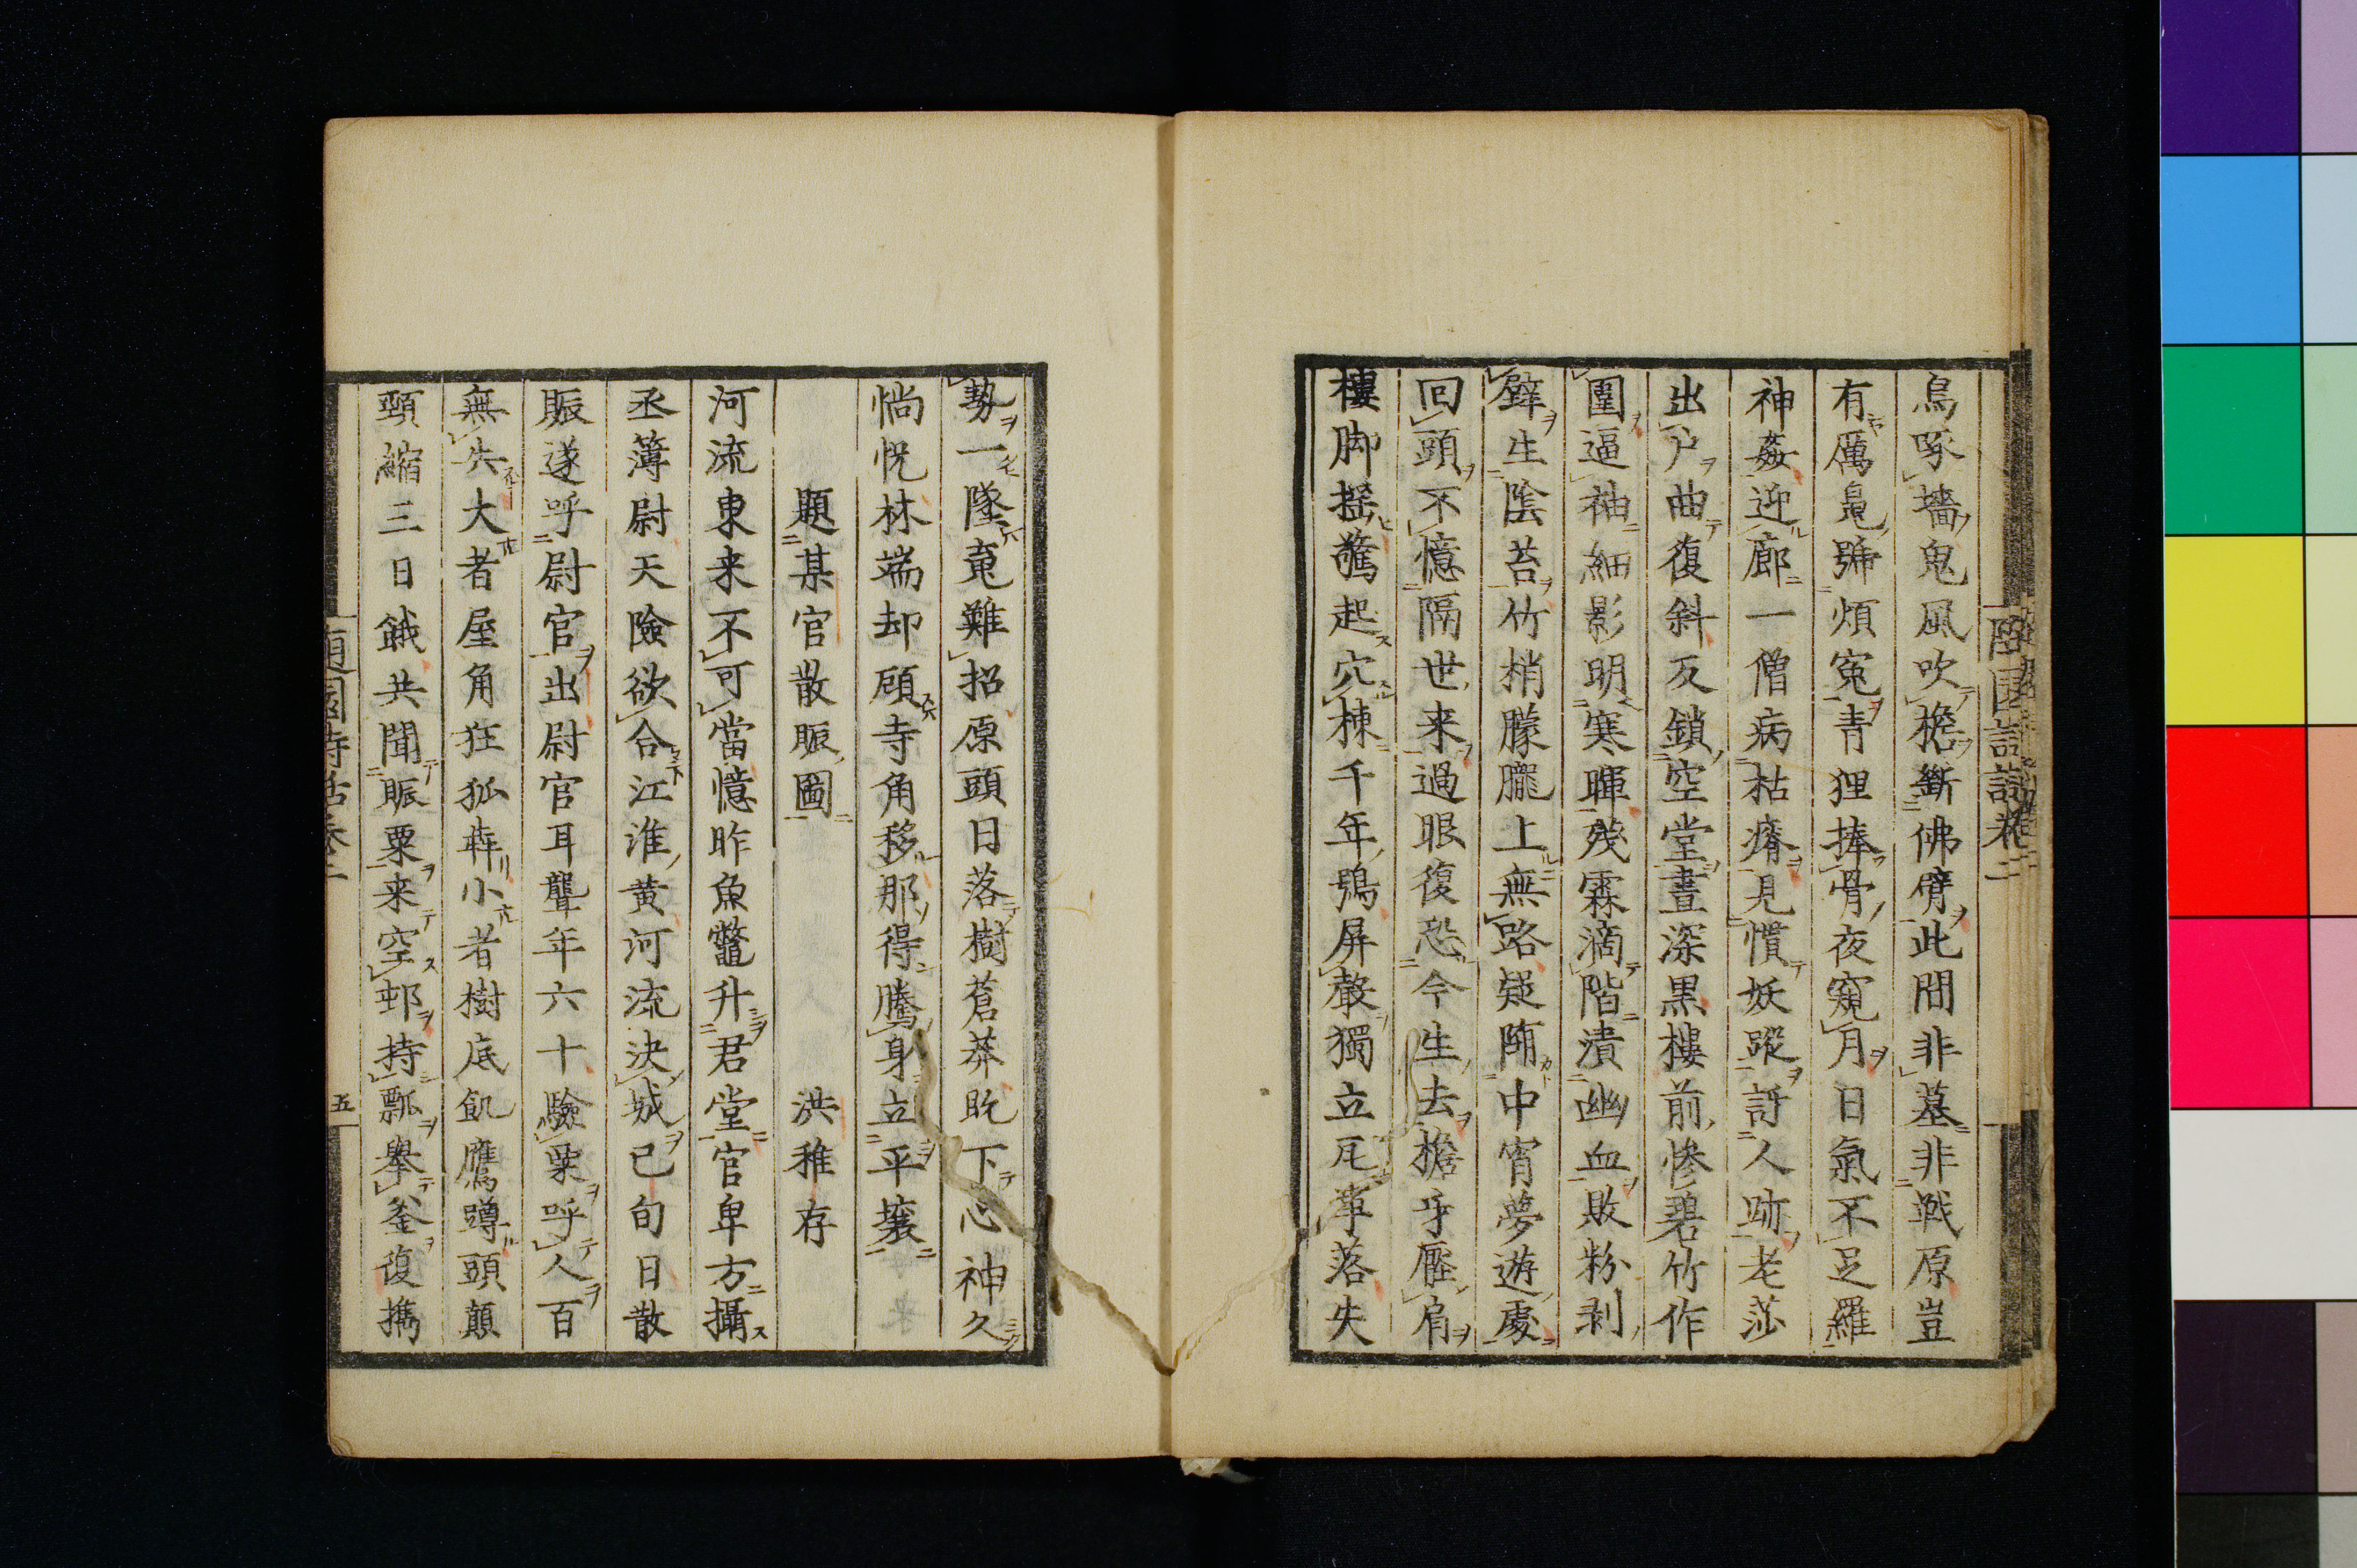 烏啄墻鬼風吹檐斷佛臂此間非墓非戰原豈
有厲鬼號煩寃青狸捧骨夜窺月日氣不足羅
神姦迎廊一僧病枯瘠見慣妖蹤訝人跡老莎
出戶曲復斜反鎖空堂晝深黑樓前慘碧竹作
圍逼袖細影明寒暉殘霖滴階潰幽血敗粉剥
壁生陰苔竹梢朦朧上無路疑陏中宵夢遊處
回頭不憶隔世来過眼復恐今生去檐牙壓肩
樓脚揺驚起穴棟千年鴞屏聲獨立瓦草落失
勢一墜竟難招原頭日落樹蒼莽既下心神久
惝怳林端却顧寺角移那得騰身立平
題某官散賑圖　洪稚存
河流東来不可當憶昨魚鼈升君堂官卑方攝
丞簿尉天險欲合江淮黄河流決城已旬日散
賑遂呼尉官出尉官耳聾年六十驗粟呼人百
無失大者屋角狂狐犇小者樹底飢鷹蹲頭顛
頸縮三日餓共聞賑粟来空邨持瓢擧釜復携
五